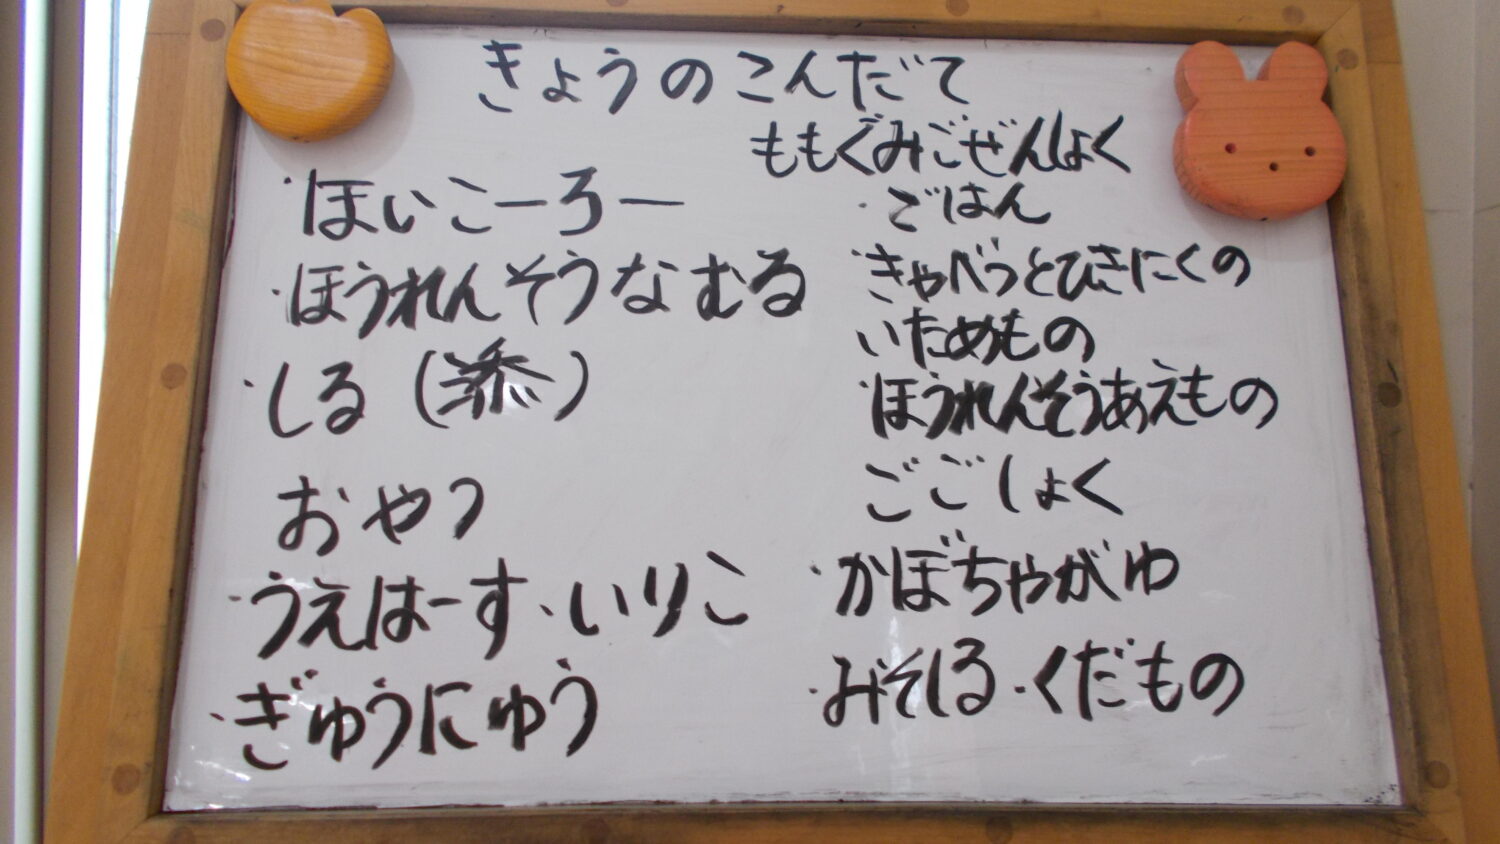 きょうのこんだて
・ほいこーろー
・ほうれんそうなむる
・しる(添)
おやつ
・うえはーす・いりこ
・ぎゅうにゅう
ももぐみごぜんしょく
・ごはん
・きゃべつとひきにくの
いためもの
・ほうれんそうあえもの
ごごしょく
・かぼちゃがゆ
・みそしる・くだもの